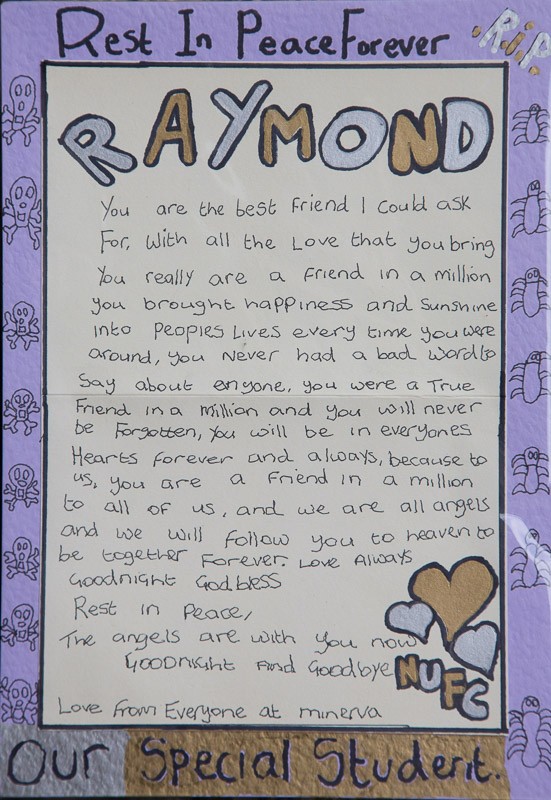 Rest In Peace Forever
R.i.P.
RAYMOND
You are the best friend I could ask
For, with all the Love that you bring
You really are a friend in a million
you brought happiness and sunshine
into Peoples Lives every time you were
around, you Never had a bad word to
Say about enyone, you were a True
Friend in a million and you will never
be Forgotten, you will be in everyones
Hearts forever and always, because to
us, you are a friend in a million
to all of us, and we are all angels
and we will follow you to heaven to
be together Forever. Love Always
Goodnight God bless
Rest in Peace,
The angels are with you now
Goodnight And Goodbye
NUFC
Love From Everyone at minerva
Our Special Student.